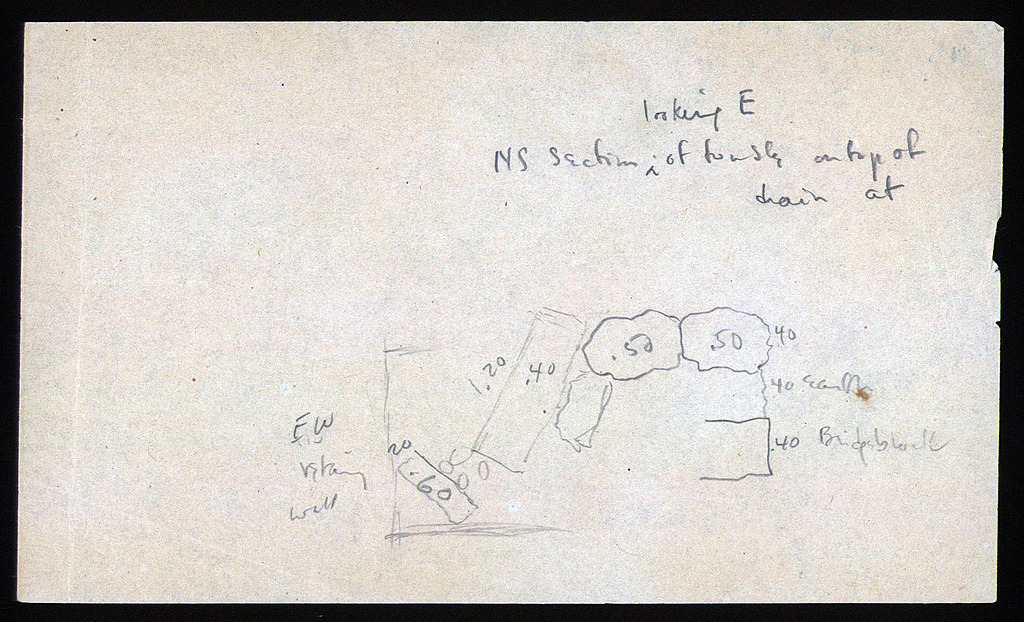 looking E
NS Section, of tumble on top of
drain at
.50
.50
.40
1.20
.40
.40 earth
EW
.40 Bridgeblock
20
retaining
.60
wall